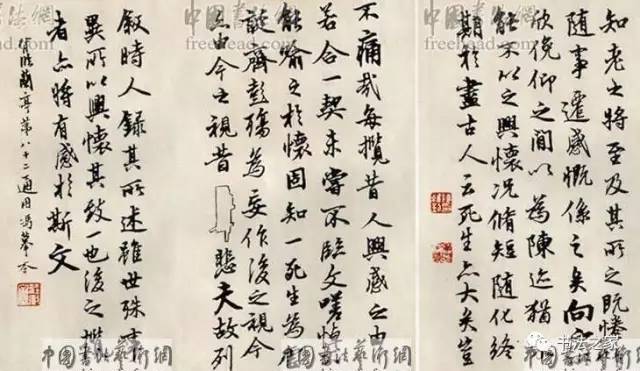 知老之將至及其所之既惓
随事遷感慨係之矣向
欣俛仰之間以為陳迹猶
能不以之興懷况脩短隨化終
期於盡古人云死生亦大矣豈
不痛哉每攬昔人興感之由
若合一契未嘗不臨文嗟悼
能喻之於懷固知一死生為虛
誕齊彭殤為妄作後之視今
亦由今之視昔 悲夫故列
敘時人錄其所述雖世殊事
異所以興懷其致一也後之攬
者亦將有感於斯文
背臨蘭亭第八十二通用馮摹本
中國書法藝術網
freehead.com
書法之家